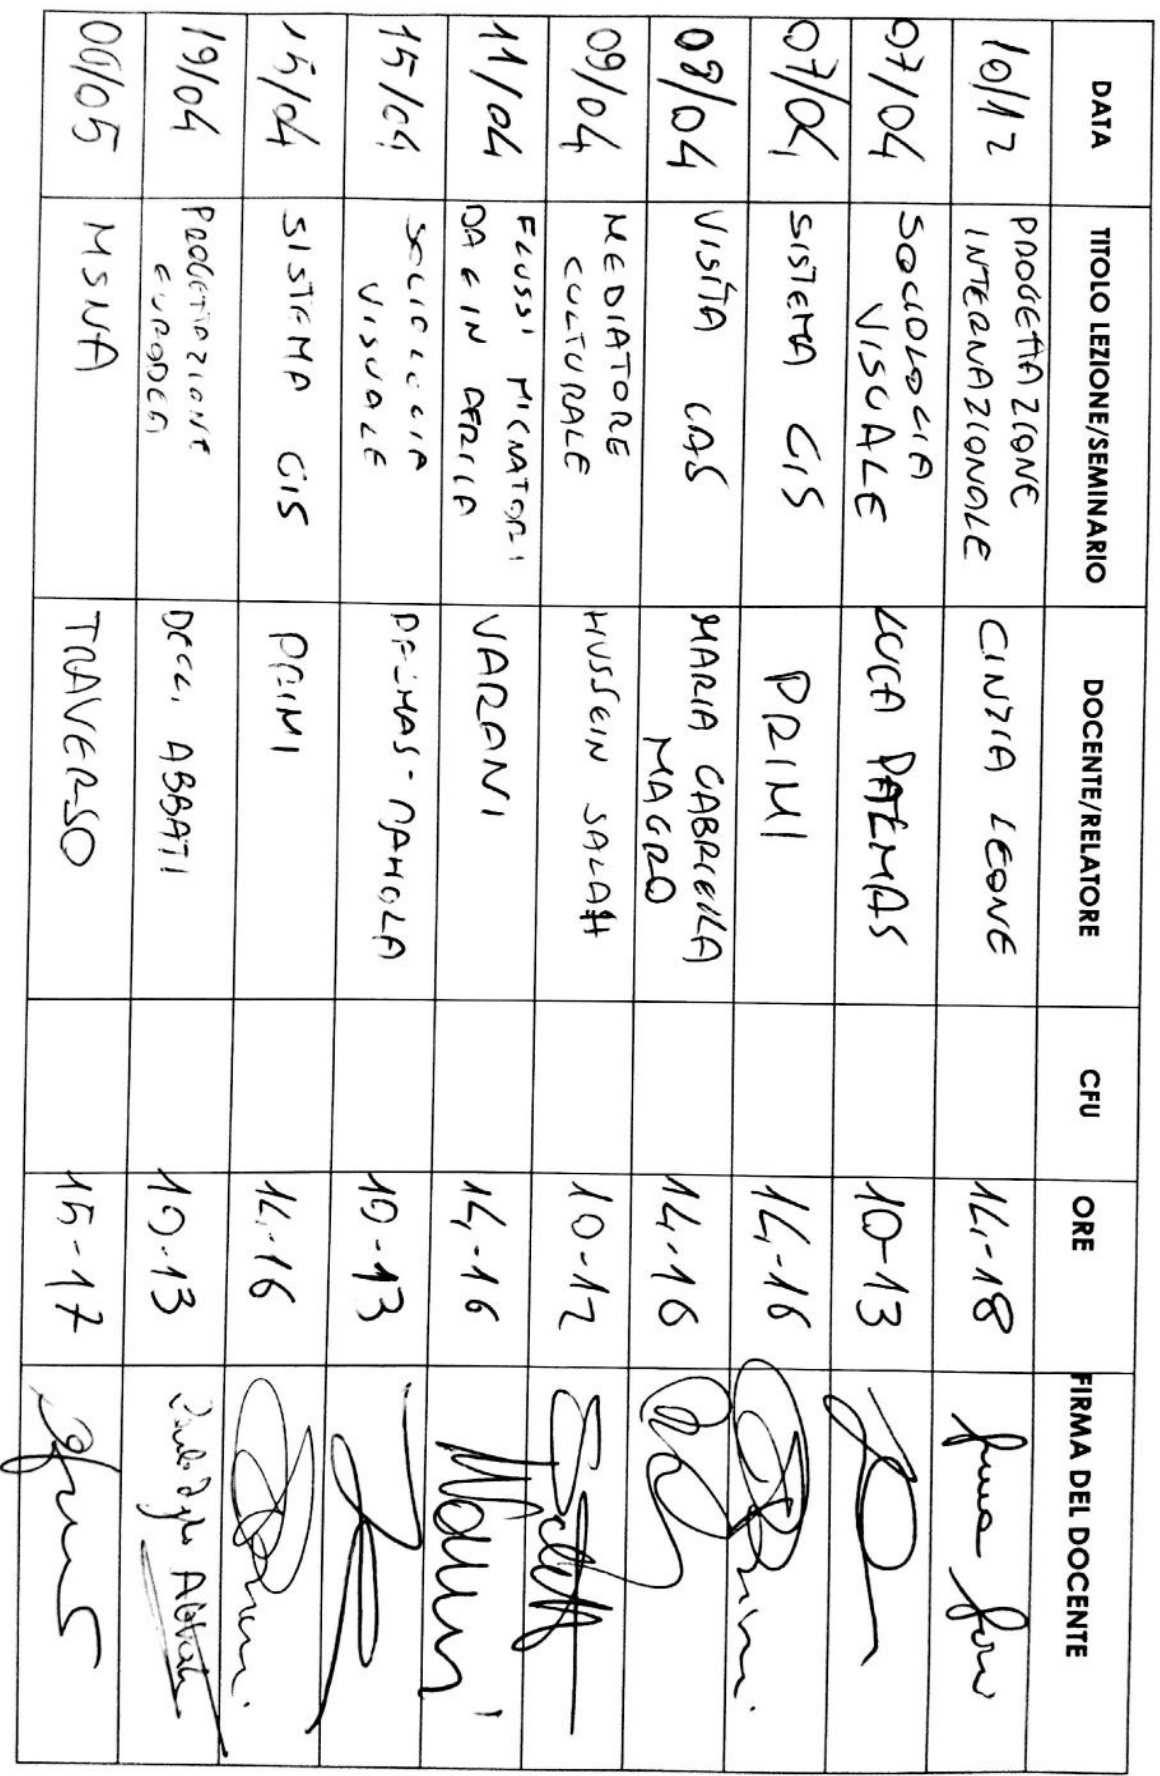 DATA TITOLO LEZIONE/SEMINARIO DOCENTE/RELATORE CFU ORE FIRMA DEL DOCENTE
10/12 PROGETTAZIONE INTERNAZIONALE CINZIA LEONE 14-18
07/04 SOCIOLOGIA VISUALE LUCA PALMAS 10-13
07/04 SISTEMA GIS PRIMI 14-16
08/04 VISITA CAS MARIA GABRIELLA MAGRO 14-16
09/04 MEDIATORE CULTURALE HUSSEIN SALAH 10-12
11/04 FLUSSI MIGRATORI DA E IN AFRICA VARANI 14-16
15/04 SOCIOLOGIA VISUALE PALMAS- 10-13
15/04 SISTEMA GIS PRIMI 14-16
19/04 PROGETTAZIONE EUROPEA DEGLI ABBATI 10-13
06/05 MSNA TRAVERSO 15-17